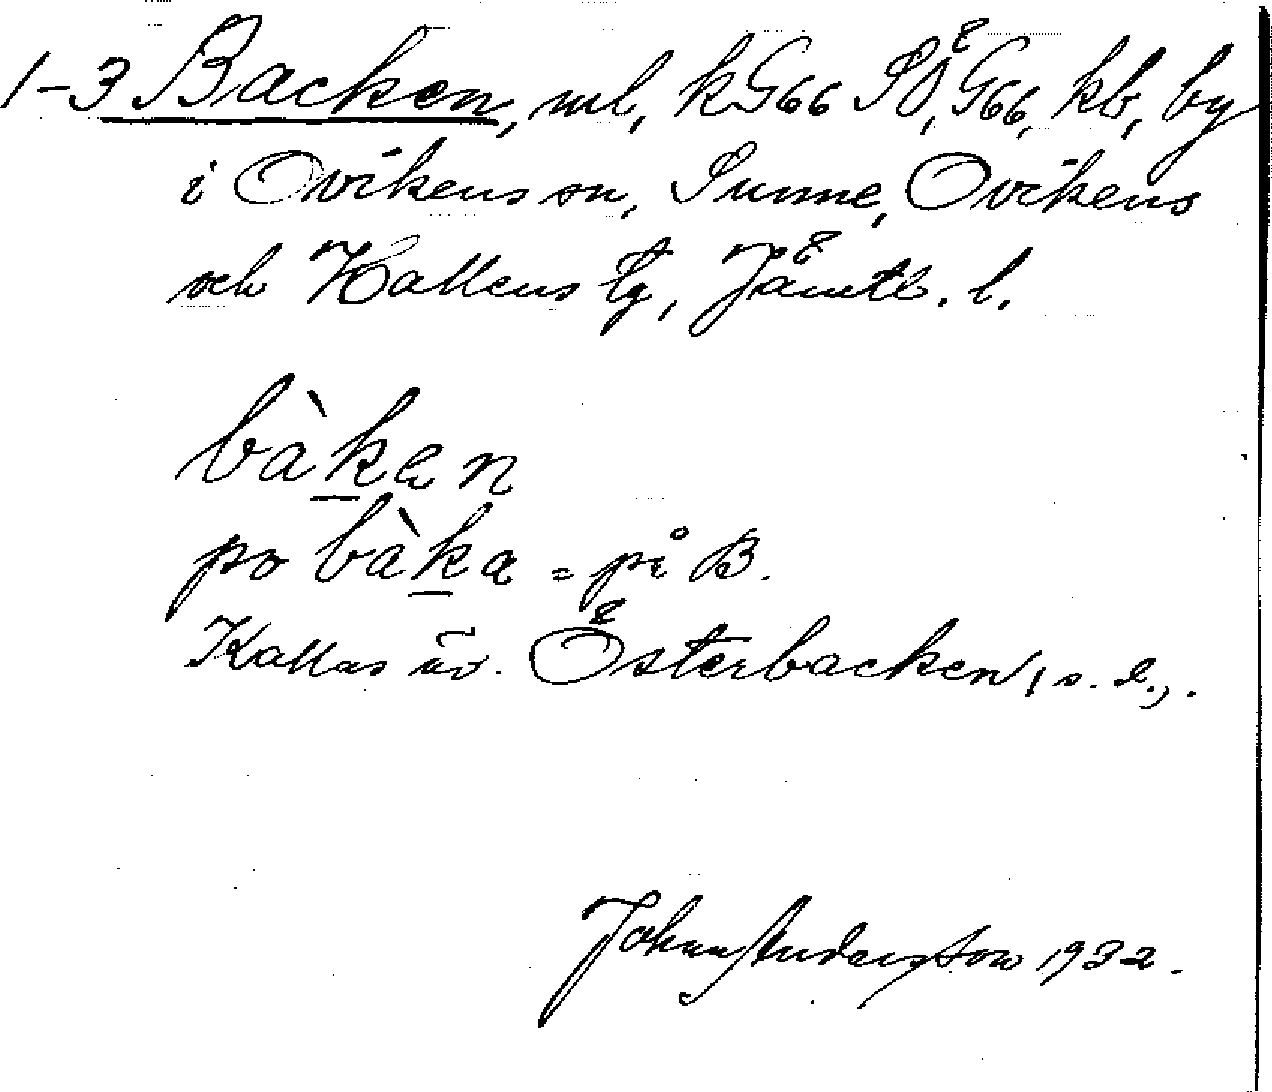 1-3 Backen, mb, kG66 SÖ, G66, kb, by
i Ovikens sn, Sunne, Ovikens
och Hallens tg, Jämtl. l.
bàk̲en
po bàk̲a = på B.
Kallas äv. Österbacken, s. d.,.
Johan Andersson 1932.